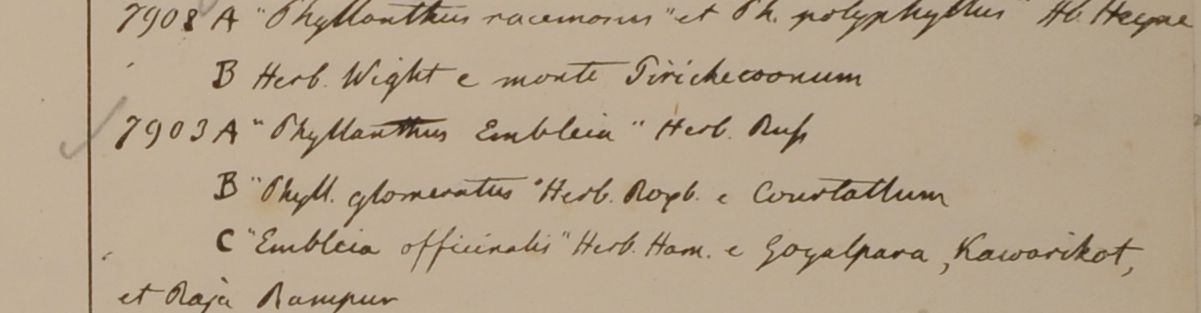 7908 A "Phyllanthus racemosus" et Ph. polyphyllus" Hb. Heyne
B Herb. Wight e monte Tirichecoonum
7903 A "Phyllanthus Emblcia" Herb. Russ
B "Phyll. glomeratus" Herb. Roxb. e Courtallum
C "Emblcia officinalis" Herb. Ham. e Goyalpara, Kawarikot,
et Raja Rampur